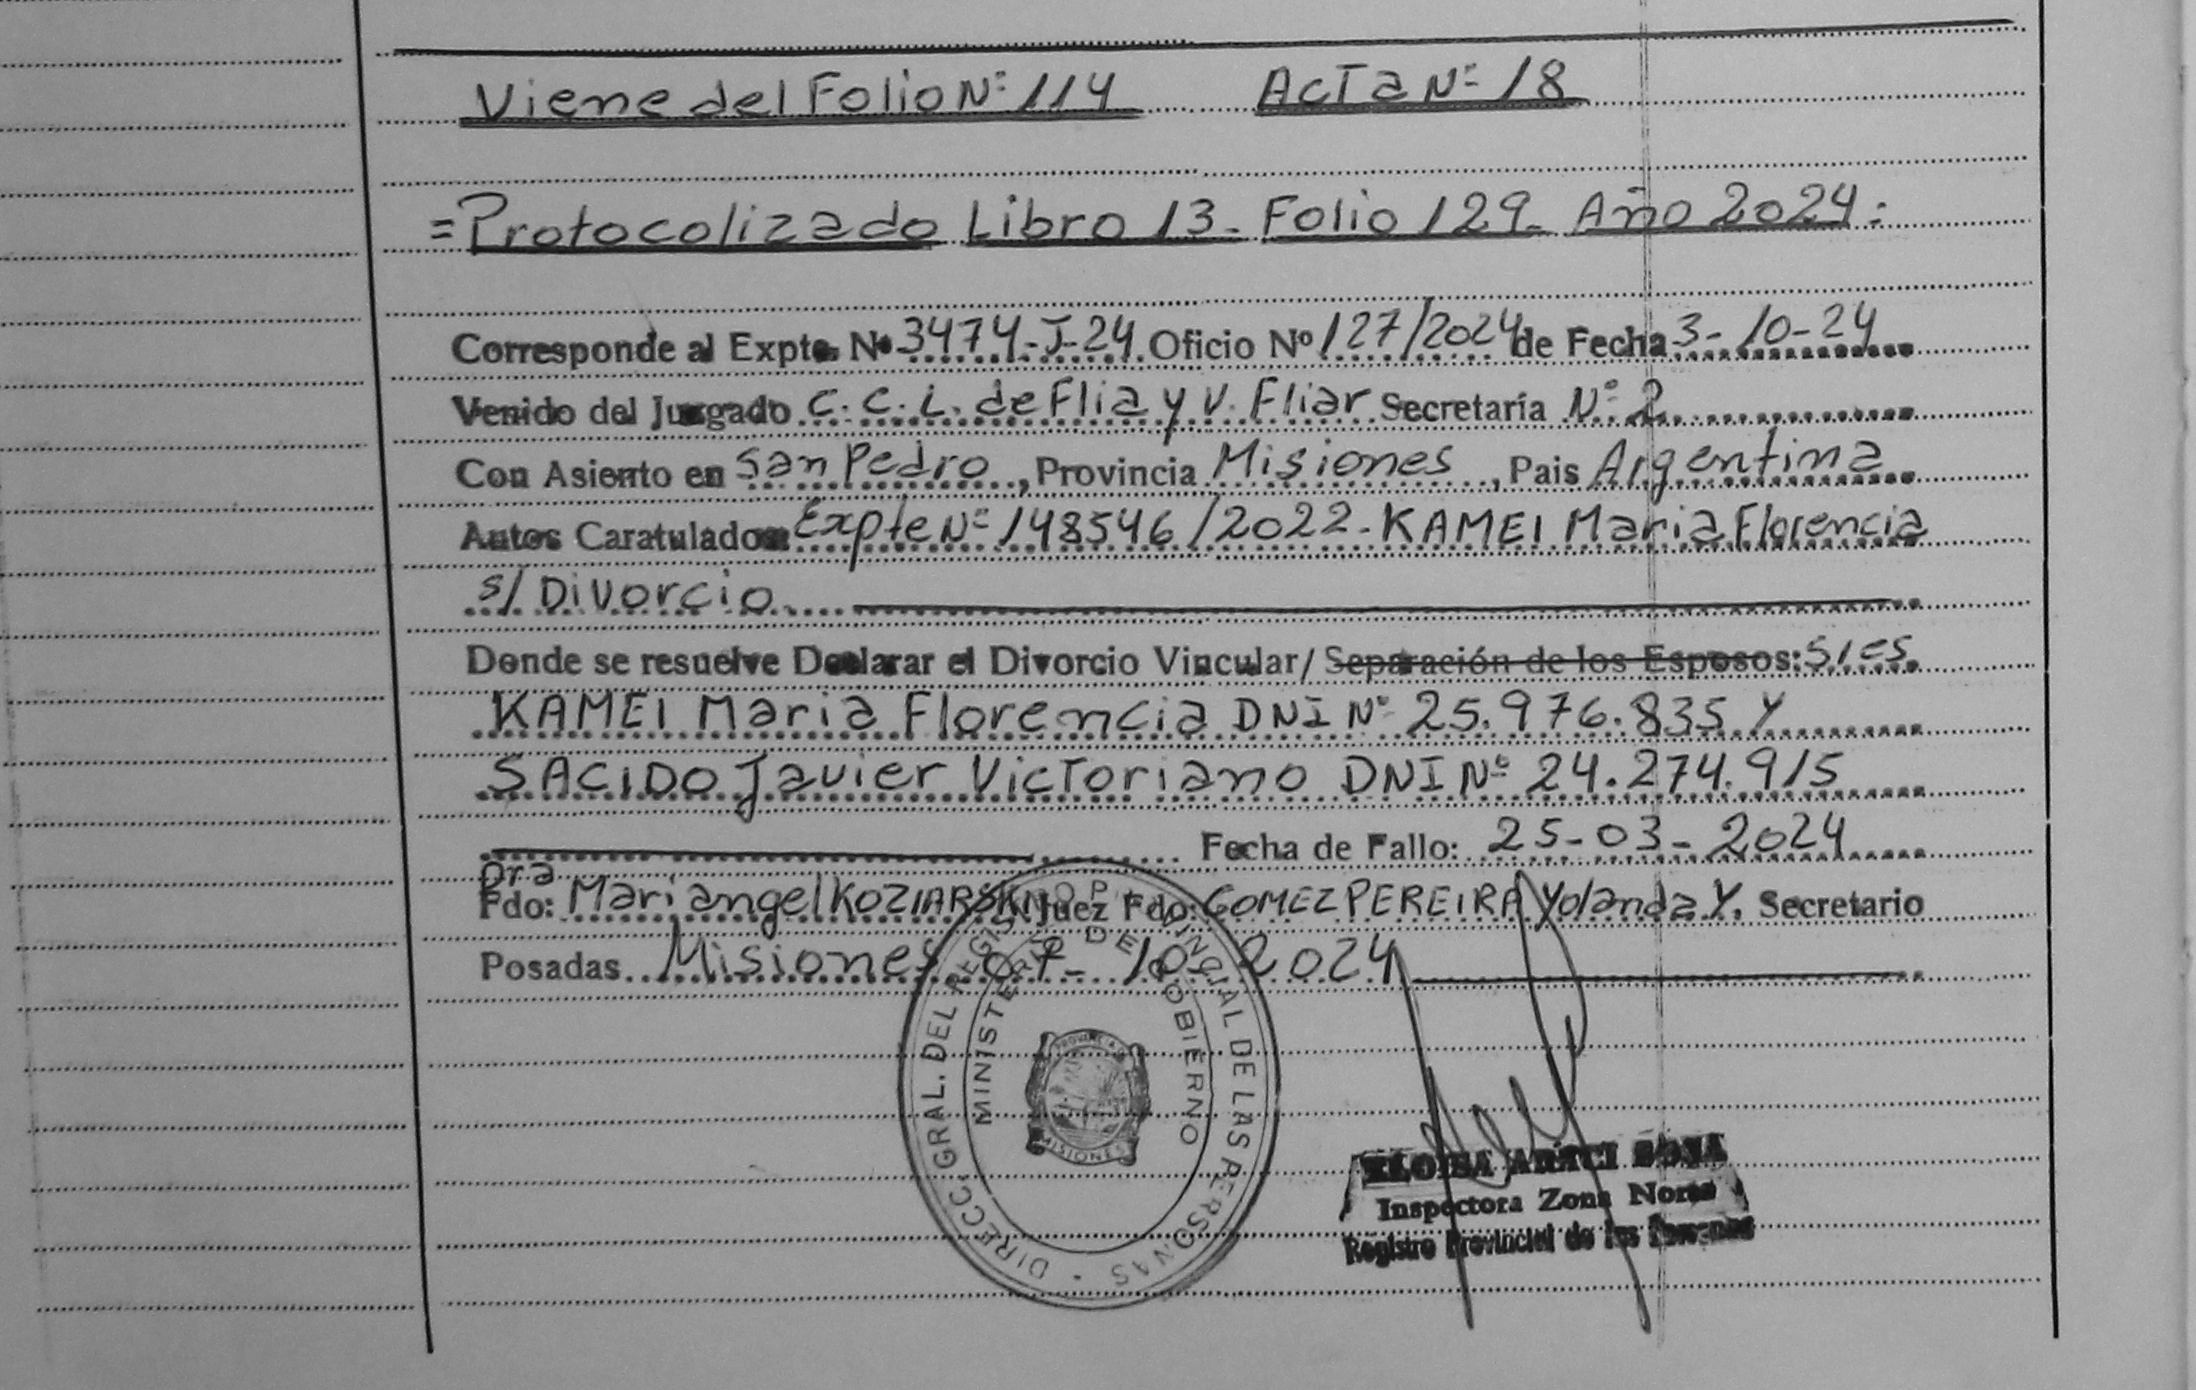 Viene del Folio Nº 114 Acta Nº 18
= Protocolizado Libro 13- Folio 129- Año 2024:
Corresponde al Expte. Nº 3474-J-24 Oficio Nº 127/2024 de Fecha 3-10-24
Venido del Juzgado C.C.L. de Flia y V. Fliar Secretaría Nº 2
Con Asiento en San Pedro, Provincia Misiones, Pais Argentina
Autos Caratulados Expte Nº 148546/2022- KAMEI Maria Florencia
s/ Divorcio
Donde se resuelve Declarar el Divorcio Vincular/ Separación de los Esposos: Si es
KAMEI Maria Florencia DNI Nº 25.976.835 Y
SACIDO Javier Victoriano DNI Nº 24.274.915
Fecha de Fallo: 25-03-2024
Dra
Fdo: Mariangel KOZIARSKI Juez Fdo: GOMEZ PEREIRA Yolanda Y. Secretario
Posadas Misiones 10 2024
DIRECC. GRAL. DEL REGISTRO PROVINCIAL DE LAS PERSONAS
MINISTERIO DE GOBIERNO
PROVINCIA
MISIONES
ELOISA ARACI SOSA
Inspectora Zona Norte
Registro Provincial de las Personas